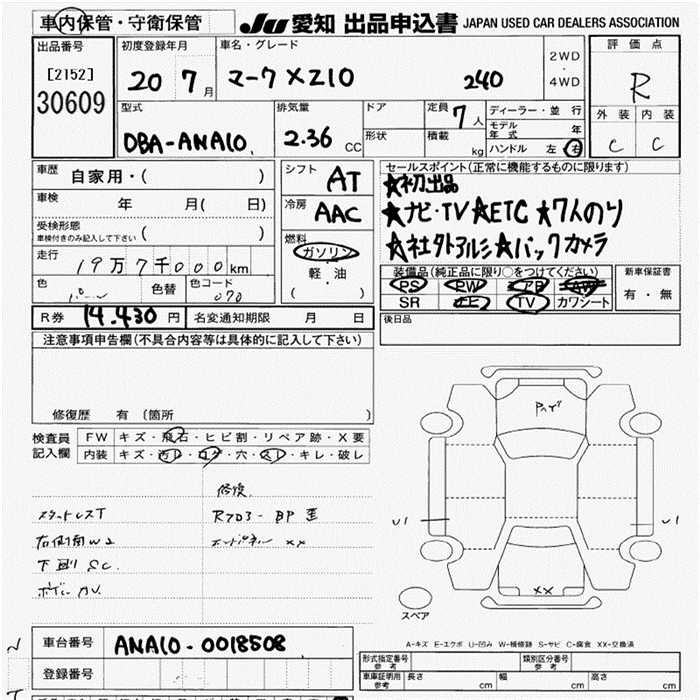 車内保管・守衛保管 JU 愛知 出品申込書 JAPAN USED CAR DEALERS ASSOCIATION
出品番号 初度登録年月 車名・グレード 2WD・4WD 評価点
[2152] 20 7月 マークXZIO 240 R
30609
型式 排気量 ドア 定員 7人 ディーラー・並行 外装 内装
DBA-ANA10 2.36 CC 形状 積載 kg モデル年式 年 C C
ハンドル 左 右
車歴 自家用・( ) シフト AT セールスポイント(正常に機能するものに限ります)
車検 年 月( 日) 冷房 AAC ★初出品
受検形態 ( ) ★ナビ・TV ★ETC ★7人のり
車検付きのみ記入して下さい 燃料 ★社外アルミ★バックカメラ
走行 19万7千000km ガソリン
軽・油
( )
装備品(純正品に限り○をつけてください) 新車保証書
色 色替 色コード 070 PS PW AB AW 有・無
SR TV カワシート
R券 14.430 円 名変通知期限 月 日 後日品
注意事項申告欄(不具合内容等は具体的に記入して下さい)
修復歴 有 〔箇所 〕
検査員 FW キズ・飛石・ヒビ割・リペア跡・X要
記入欄 内装 キズ・汚レ・コゲ・穴・スレ・キレ・破レ
修復
スタットレスT
右側面W2
下回り SC
U1 U1
XX
スペア
A-キズ E-エクボ U-凹み W-補修跡 S-サビ C-腐食 XX-交換済
車台番号 ANA10-0018508
登録番号
形式指定番号 参考 類別区分番号 参考
車庫証明用 参考 長さ cm 幅 cm 高さ cm